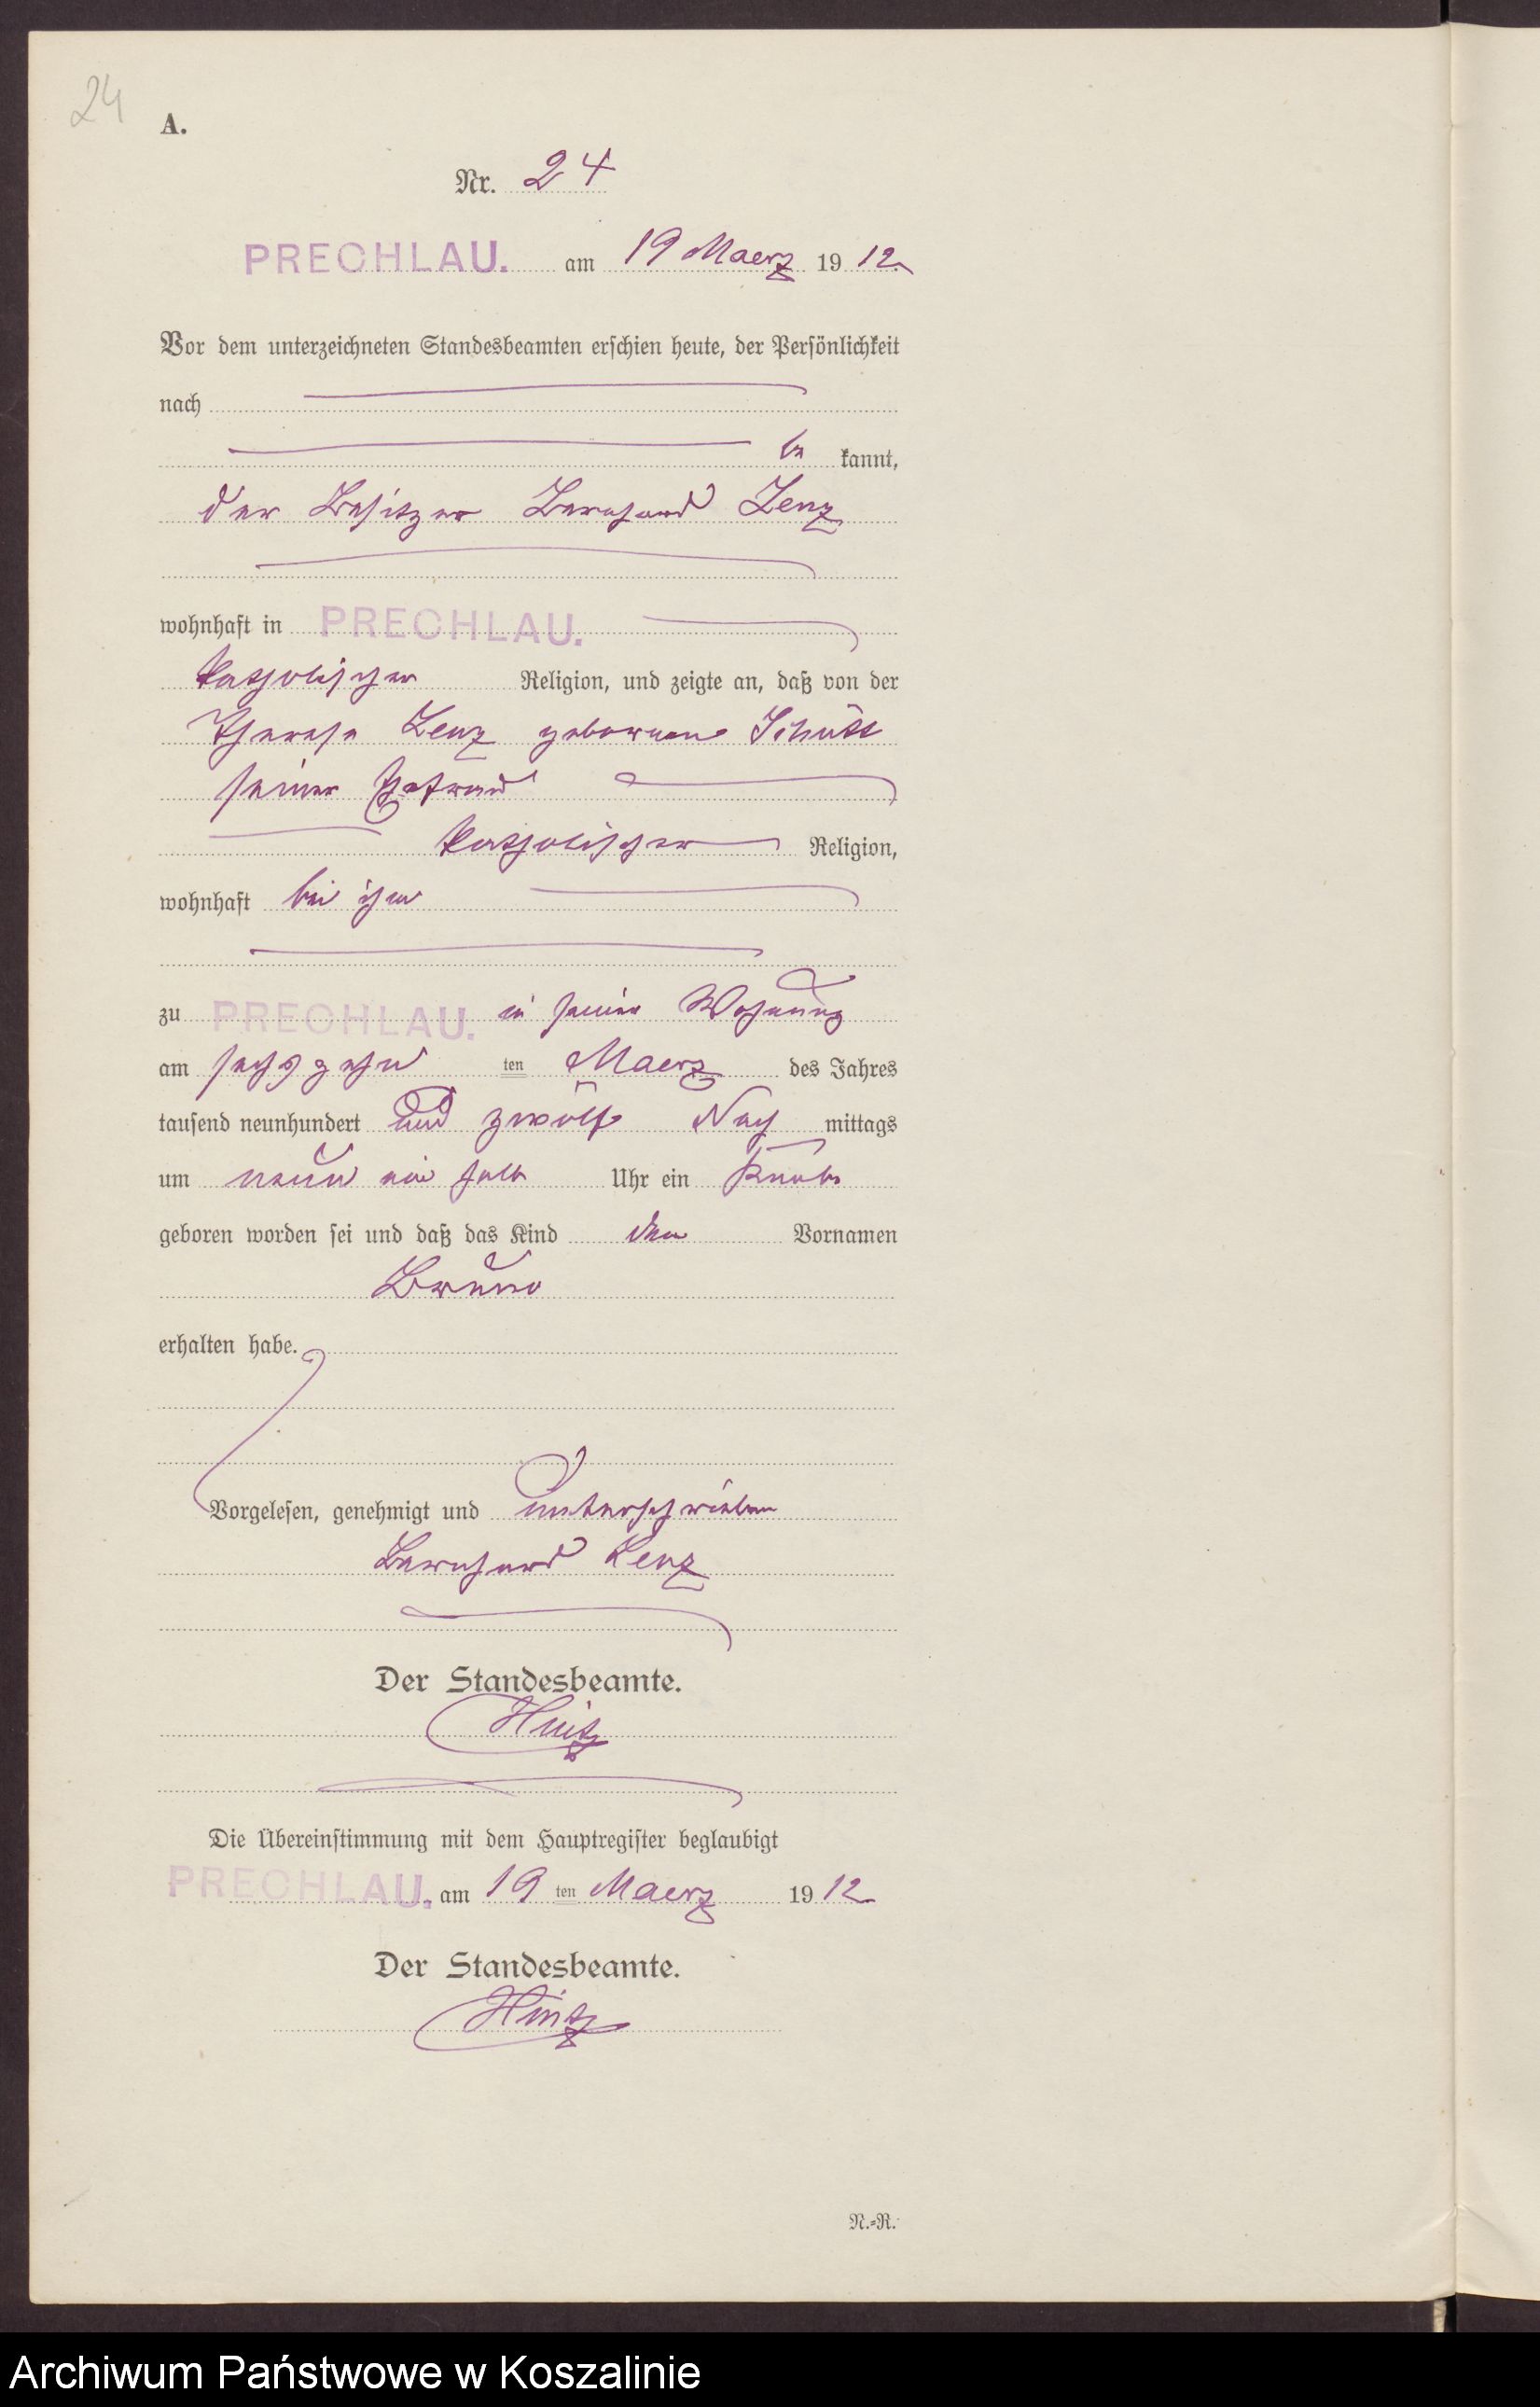 24
A.
Nr. 24
PRECHLAU. am 19 Maerz 1912.
Vor dem unterzeichneten Standesbeamten erschien heute, der Persönlichkeit
nach
be kannt,
der Besitzer Bernhard Lenz
wohnhaft in PRECHLAU.
katholischer Religion, und zeigte an, daß von der
Therese Lenz geborenen Schütt
seiner Ehefrau
katholischer Religion,
wohnhaft bei ihm
zu PRECHLAU. in seiner Wohnung
am sechszehn ten Maerz des Jahres
tausend neunhundert und zwölf Nach mittags
um neun ein halb Uhr ein Knabe
geboren worden sei und daß das Kind den Vornamen
Bruno
erhalten habe.
Vorgelesen, genehmigt und unterschrieben
Bernhard Lenz
Der Standesbeamte.
Hintz
Die Übereinstimmung mit dem Hauptregister beglaubigt
PRECHLAU. am 19 ten Maerz 1912
Der Standesbeamte.
Hintz
N.=R.
Archiwum Państwowe w Koszalinie